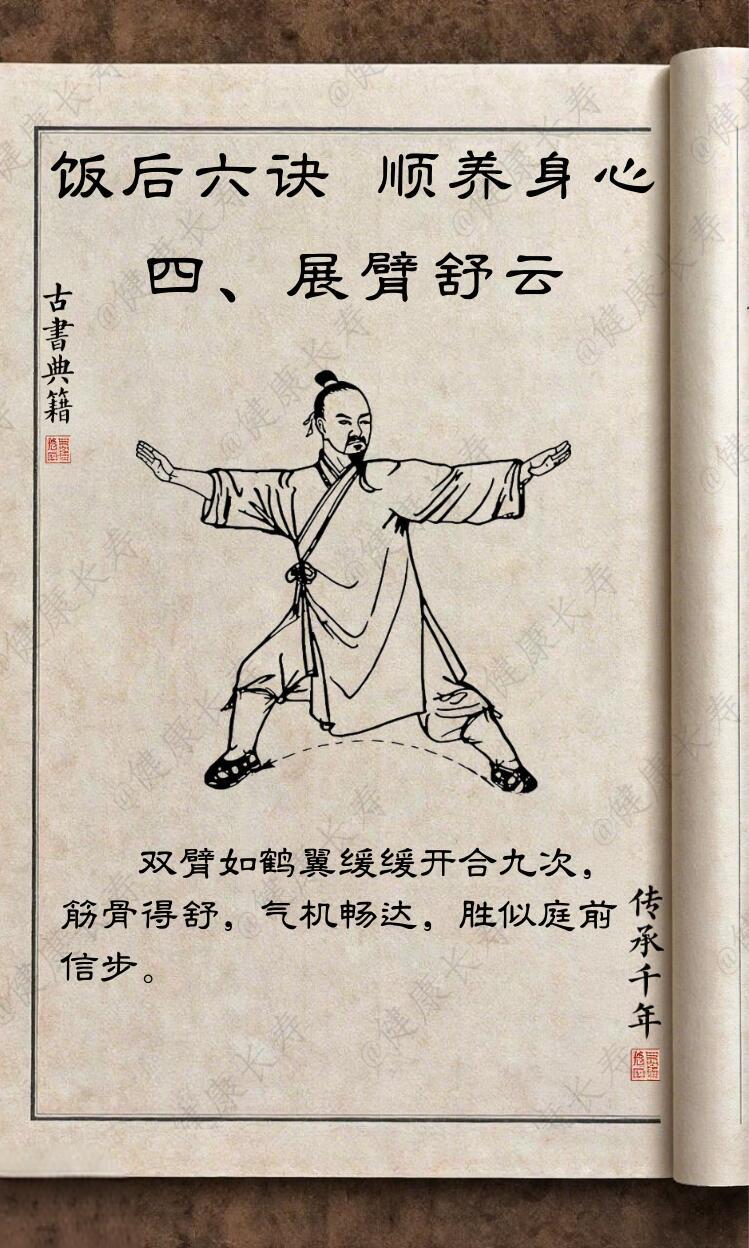 饭后六诀 顺养身心
四、展臂舒云
古書典籍
双臂如鹤翼缓缓开合九次，
筋骨得舒，气机畅达，胜似庭前
信步。
传承千年
@健康长寿